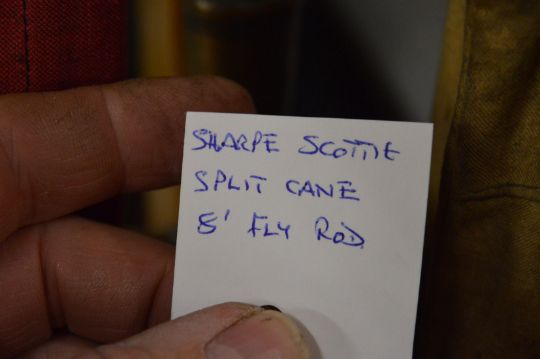 SHARPE SCOTTIE
SPLIT CANE
8' FLY ROD